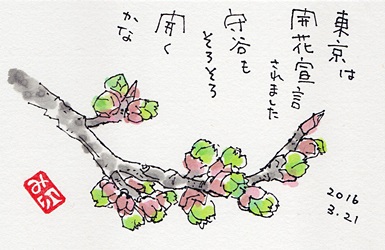 東京は
開花宣言
されました
守谷も
そろそろ
開く
かな
2016
3.21